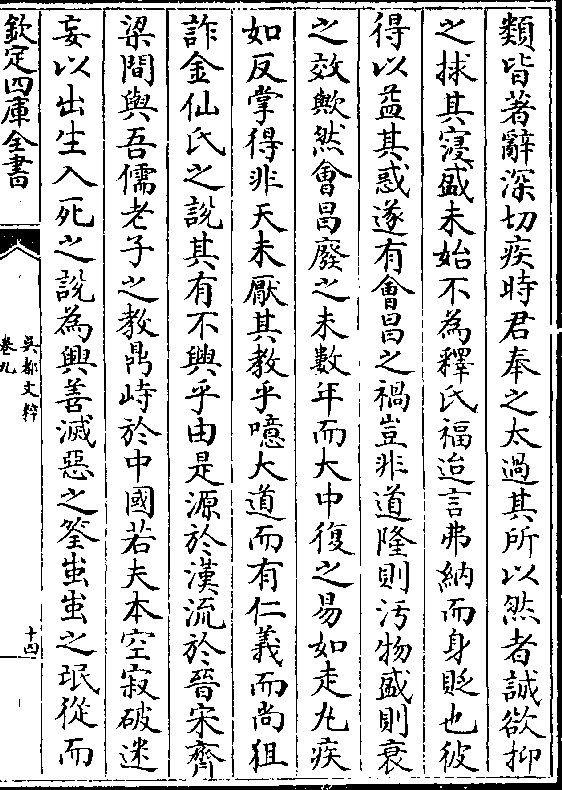 類皆著辭深切疾時君奉之太過其所以然者誠欲抑
之捄其寖盛未始不為釋氏福迨言弗納而身貶也彼
得以益其惑遂有會昌之禍豈非道隆則汚物盛則衰
之效歟然會昌廢之未數年而大中復之易如走丸疾
如反掌得非天未厭其教乎噫大道而有仁義而尚狙
詐金仙氏之說其有不興乎由是源於漢流於晉宋齊
梁間與吾儒老子之教鼎峙於中國若夫本空寂破迷
妄以出生入死之說為興善滅惡之筌蚩蚩之珉從而
欽定四庫全書
吳都文粹
卷九
十四